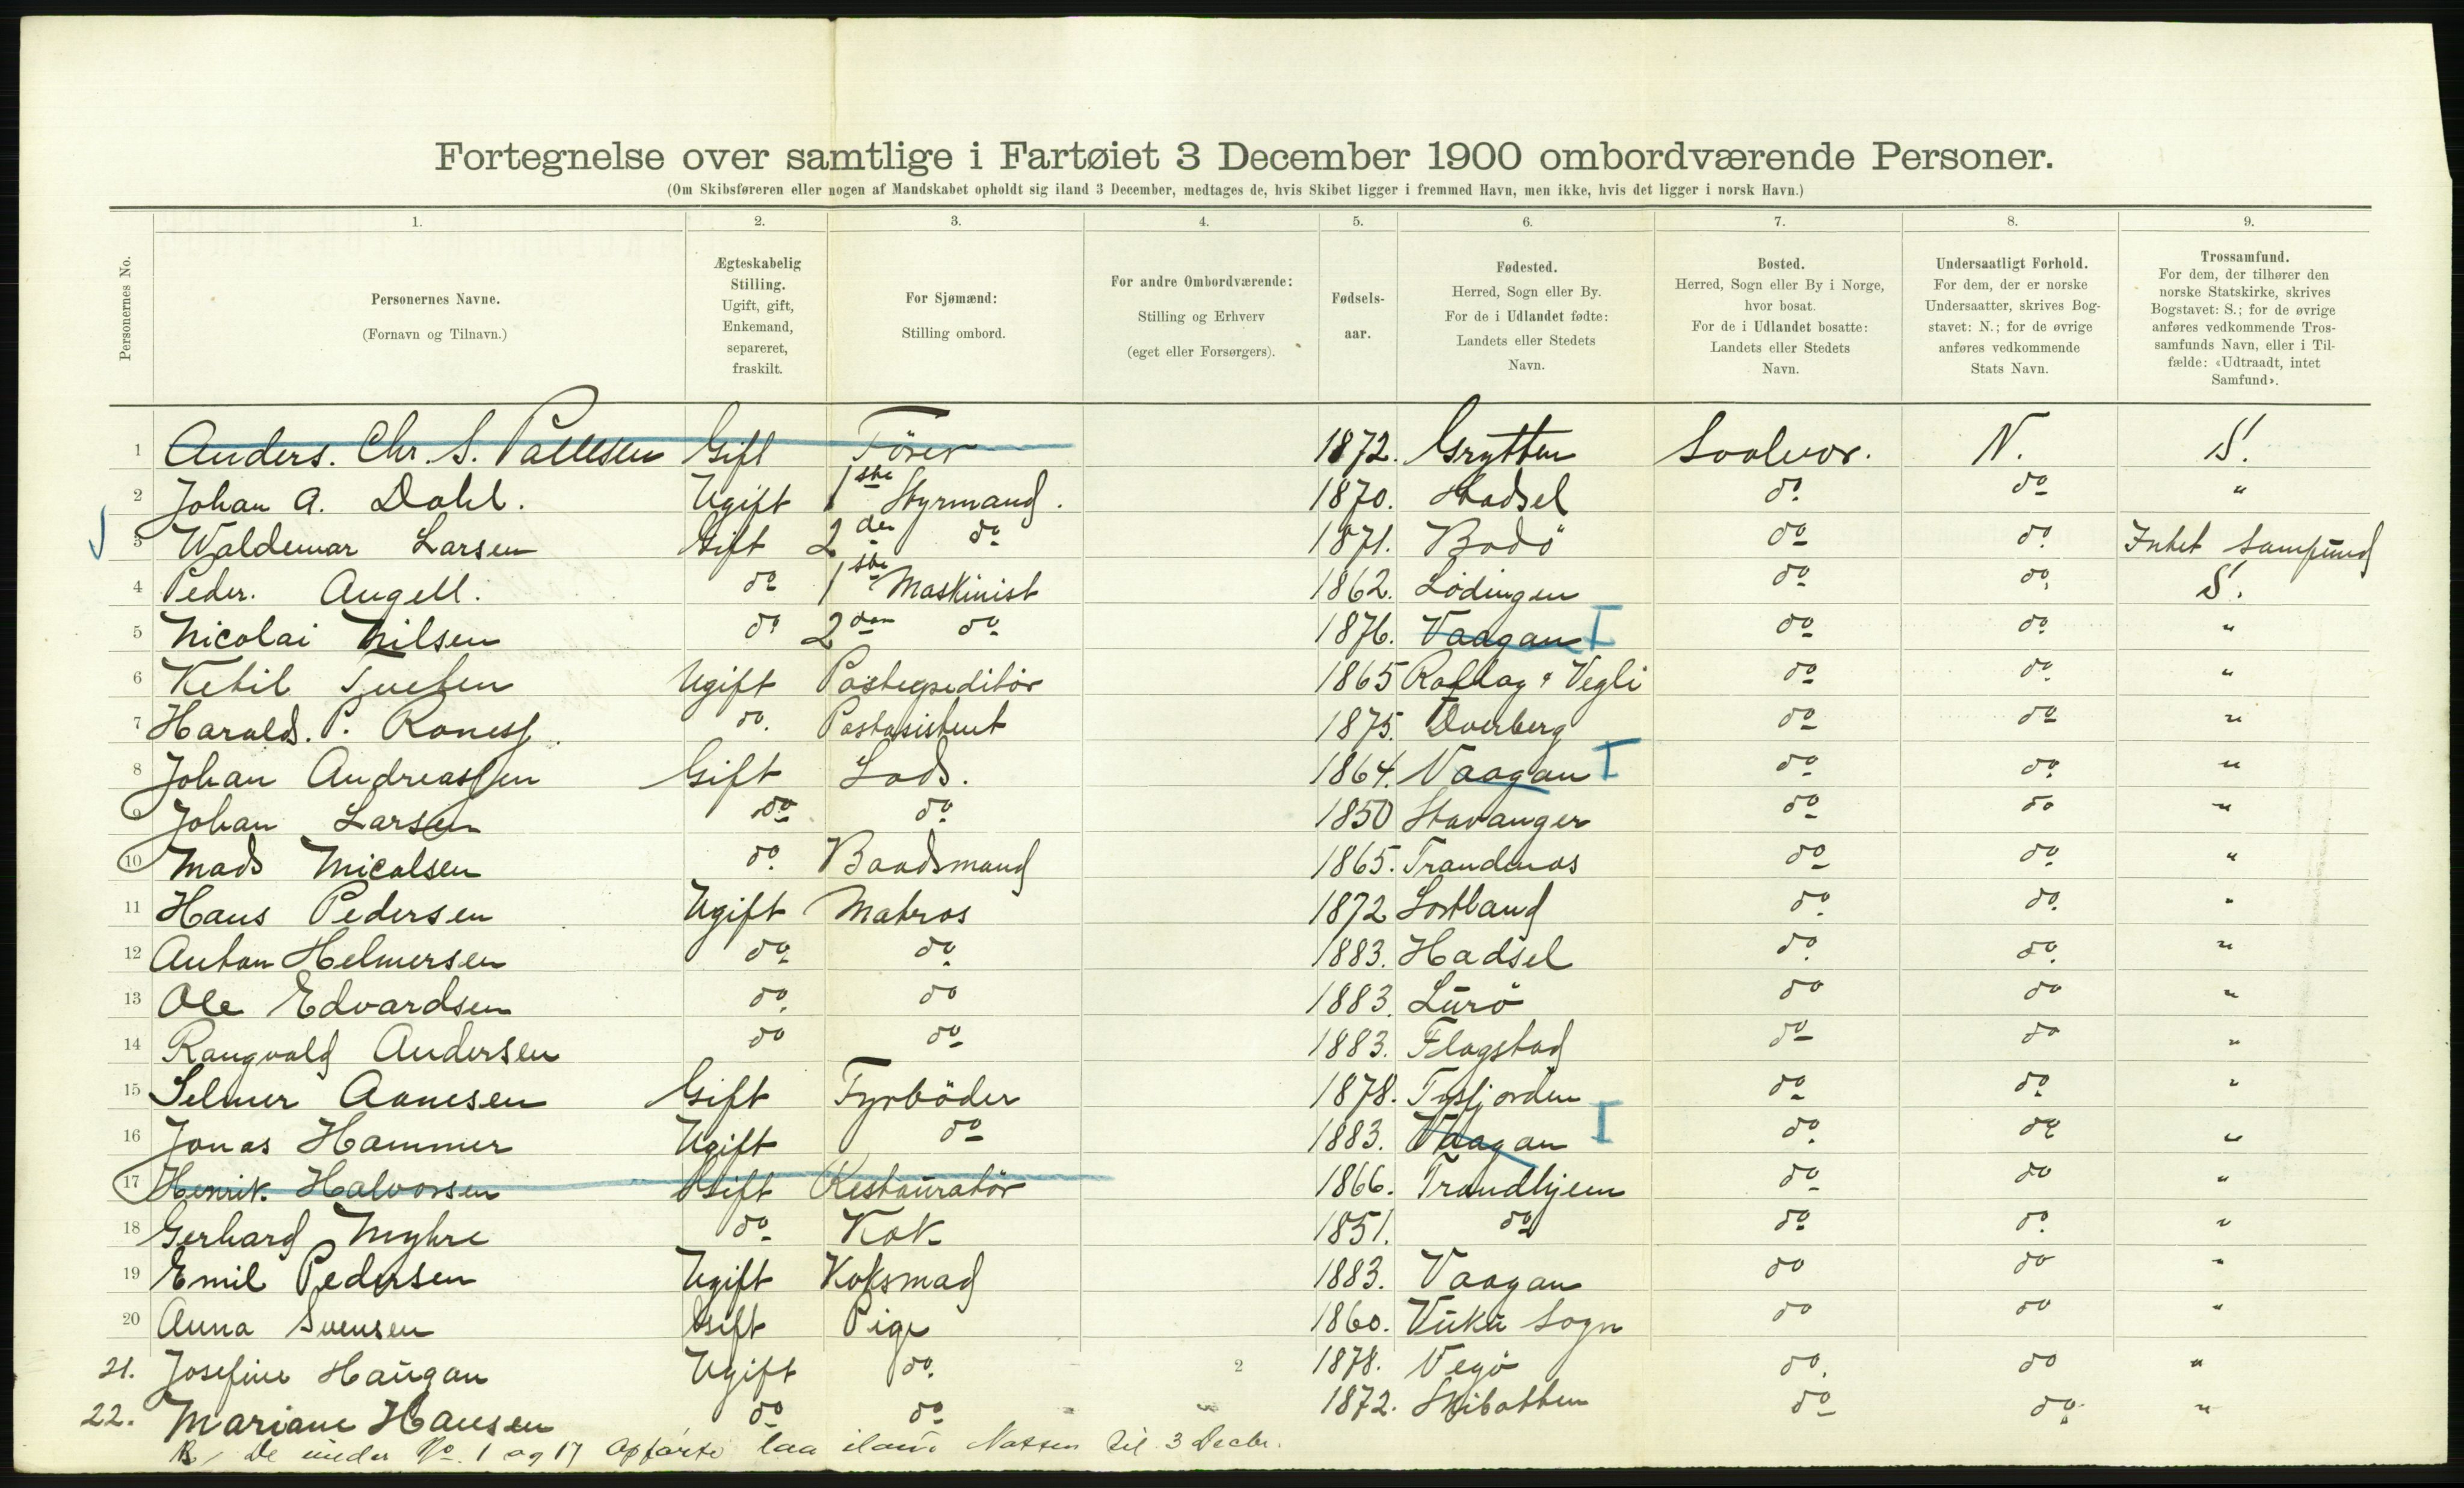 Fortegnelse over samtlige i Fartøiet 3 December 1900 ombordværende Personer.
(Om Skibsføreren eller nogen af Mandskabet opholdt sig iland 3 December, medtages de, hvis Skibet ligger i fremmed Havn, men ikke, hvis det ligger i norsk Havn.)
Personernes No.
1. 2. 3. 4. 5. 6. 7. 8. 9.
Personernes Navne.
(Fornavn og Tilnavn.)
Ægteskabelig
Stilling.
Ugift, gift,
Enkemand,
separeret,
fraskilt.
For Sjømænd:
Stilling ombord.
For andre Ombordværende:
Stilling og Erhverv
(eget eller Forsørgers).
Fødsels-
aar.
Fødested.
Herred, Sogn eller By.
For de i Udlandet fødte:
Landets eller Stedets
Navn.
Bosted.
Herred, Sogn eller By i Norge,
hvor bosat.
For de i Udlandet bosatte:
Landets eller Stedets
Navn.
Undersaatligt Forhold.
For dem, der er norske
Undersaatter, skrives Bog-
stavet: N.; for de øvrige
anføres vedkommende
Stats Navn.
Trossamfund.
For dem, der tilhører den
norske Statskirke, skrives
Bogstavet: S.; for de øvrige
anføres vedkommende Tros-
samfunds Navn, eller i Til-
fælde: «Udtraadt, intet
Samfund».
1 Anders. Chr. S. Pallesen Gift Förer 1872. Grytten Svolvær. N. S.
2 Johan A. Dahl. Ugift 1ste Styrmand. 1870. Hadsel do do "
3 Waldemar Larsen Gift 2den do 1871. Bodö do do Intet Samfund
4 Peder. Angell. do 1ste Maskinist 1862. Lödingen do do S.
5 Nicolai Nilsen do 2den do 1876. Vaagan I do do "
6 Ketil Ugift Postexpeditör 1865 Rollag & Vegli do do "
7 Harald. P. do. Postasistent 1875. Dverberg do do "
8 Johan Andreassen Gift Lods. 1864. Vaagan I do do "
9 Johan Larsen do do 1850 Stavanger do do "
10 Mads Micalsen do Baadsmand 1865. Trandenæs do do "
11 Hans Pedersen Ugift Matros 1872 do do "
12 Anton Helmersen do do 1883. Hadsel do do "
13 Ole Edvardsen do do 1883. Lurö do do "
14 Rangvald Andersen do do 1883. Flagstad do do "
15 Selmer Aanesen Gift Fyrböder 1878. do do "
16 Jonas Hammer Ugift do 1883. Vaagan I do do "
17 Henrik. Halvorsen Gift Restauratör 1866. Trondhjem do do "
18 Gerhard Myhre do Kok 1851. do do do "
19 Emil Pedersen Ugift Koksmad 1883. Vaagan do do "
20 Anna Svensen Gift Pige 1860. Vuku Sogn do do "
21. Josefine Haugan Ugift do 2 1878. Vegö do do "
22. Mariane Hansen do do 1872. Skibotten do do "
De under No. 1 og 17 opförte laa iland Natten til 3 Decbr.